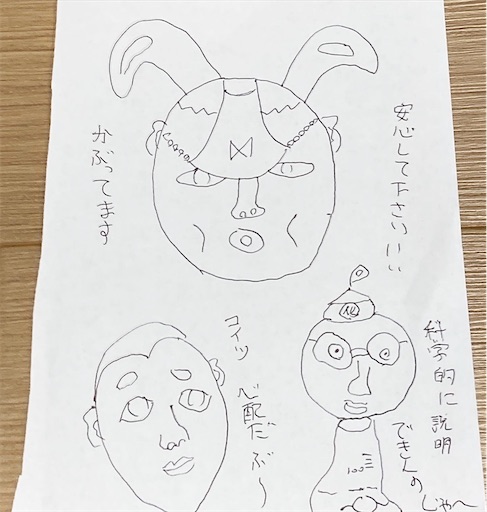 安心して下さいいい
かぶってます
科学的に説明
できんのじゃへ
コイツ
心配だぶ〜
化
100